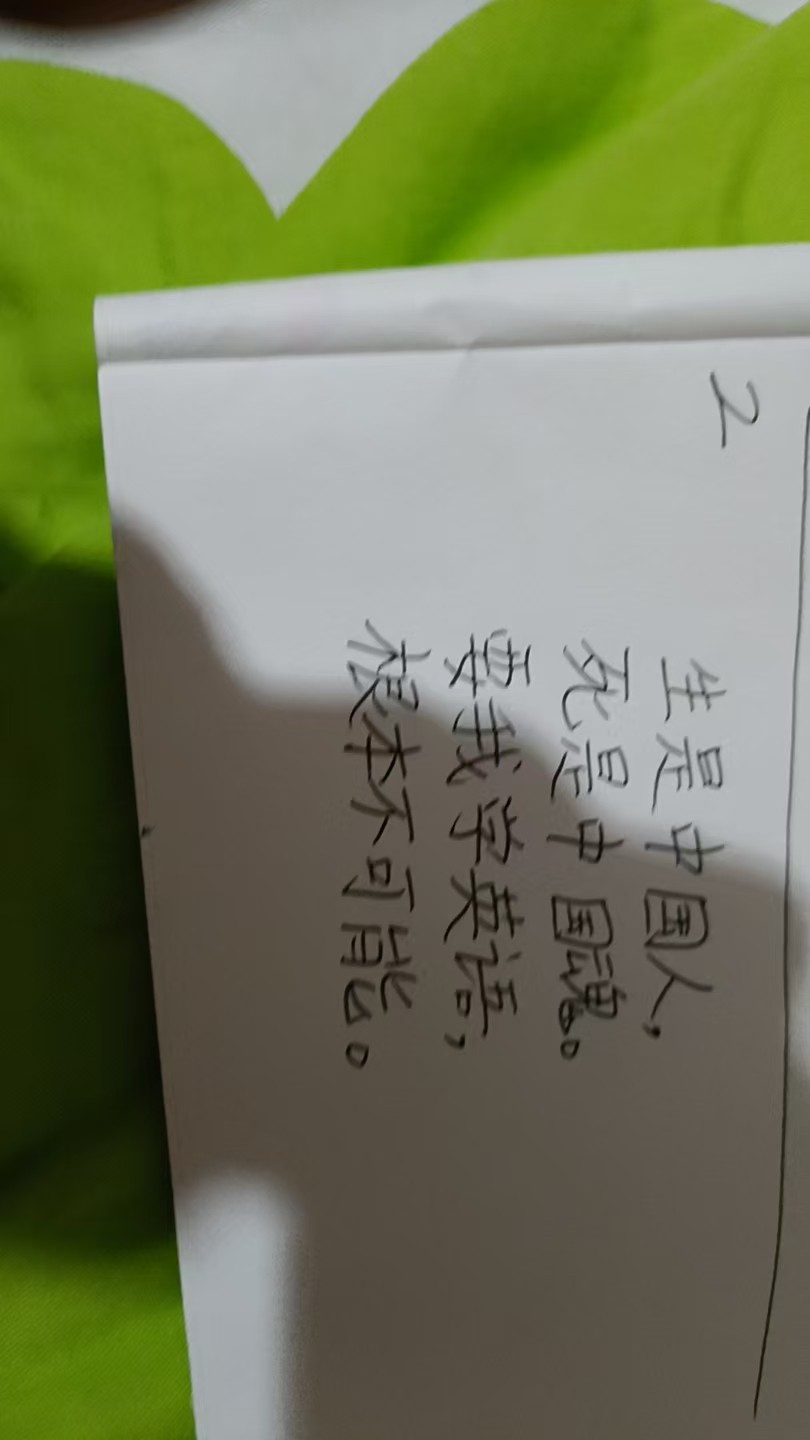 2
生是中国人,
死是中国魂。
要我学英语,
根本不可能。